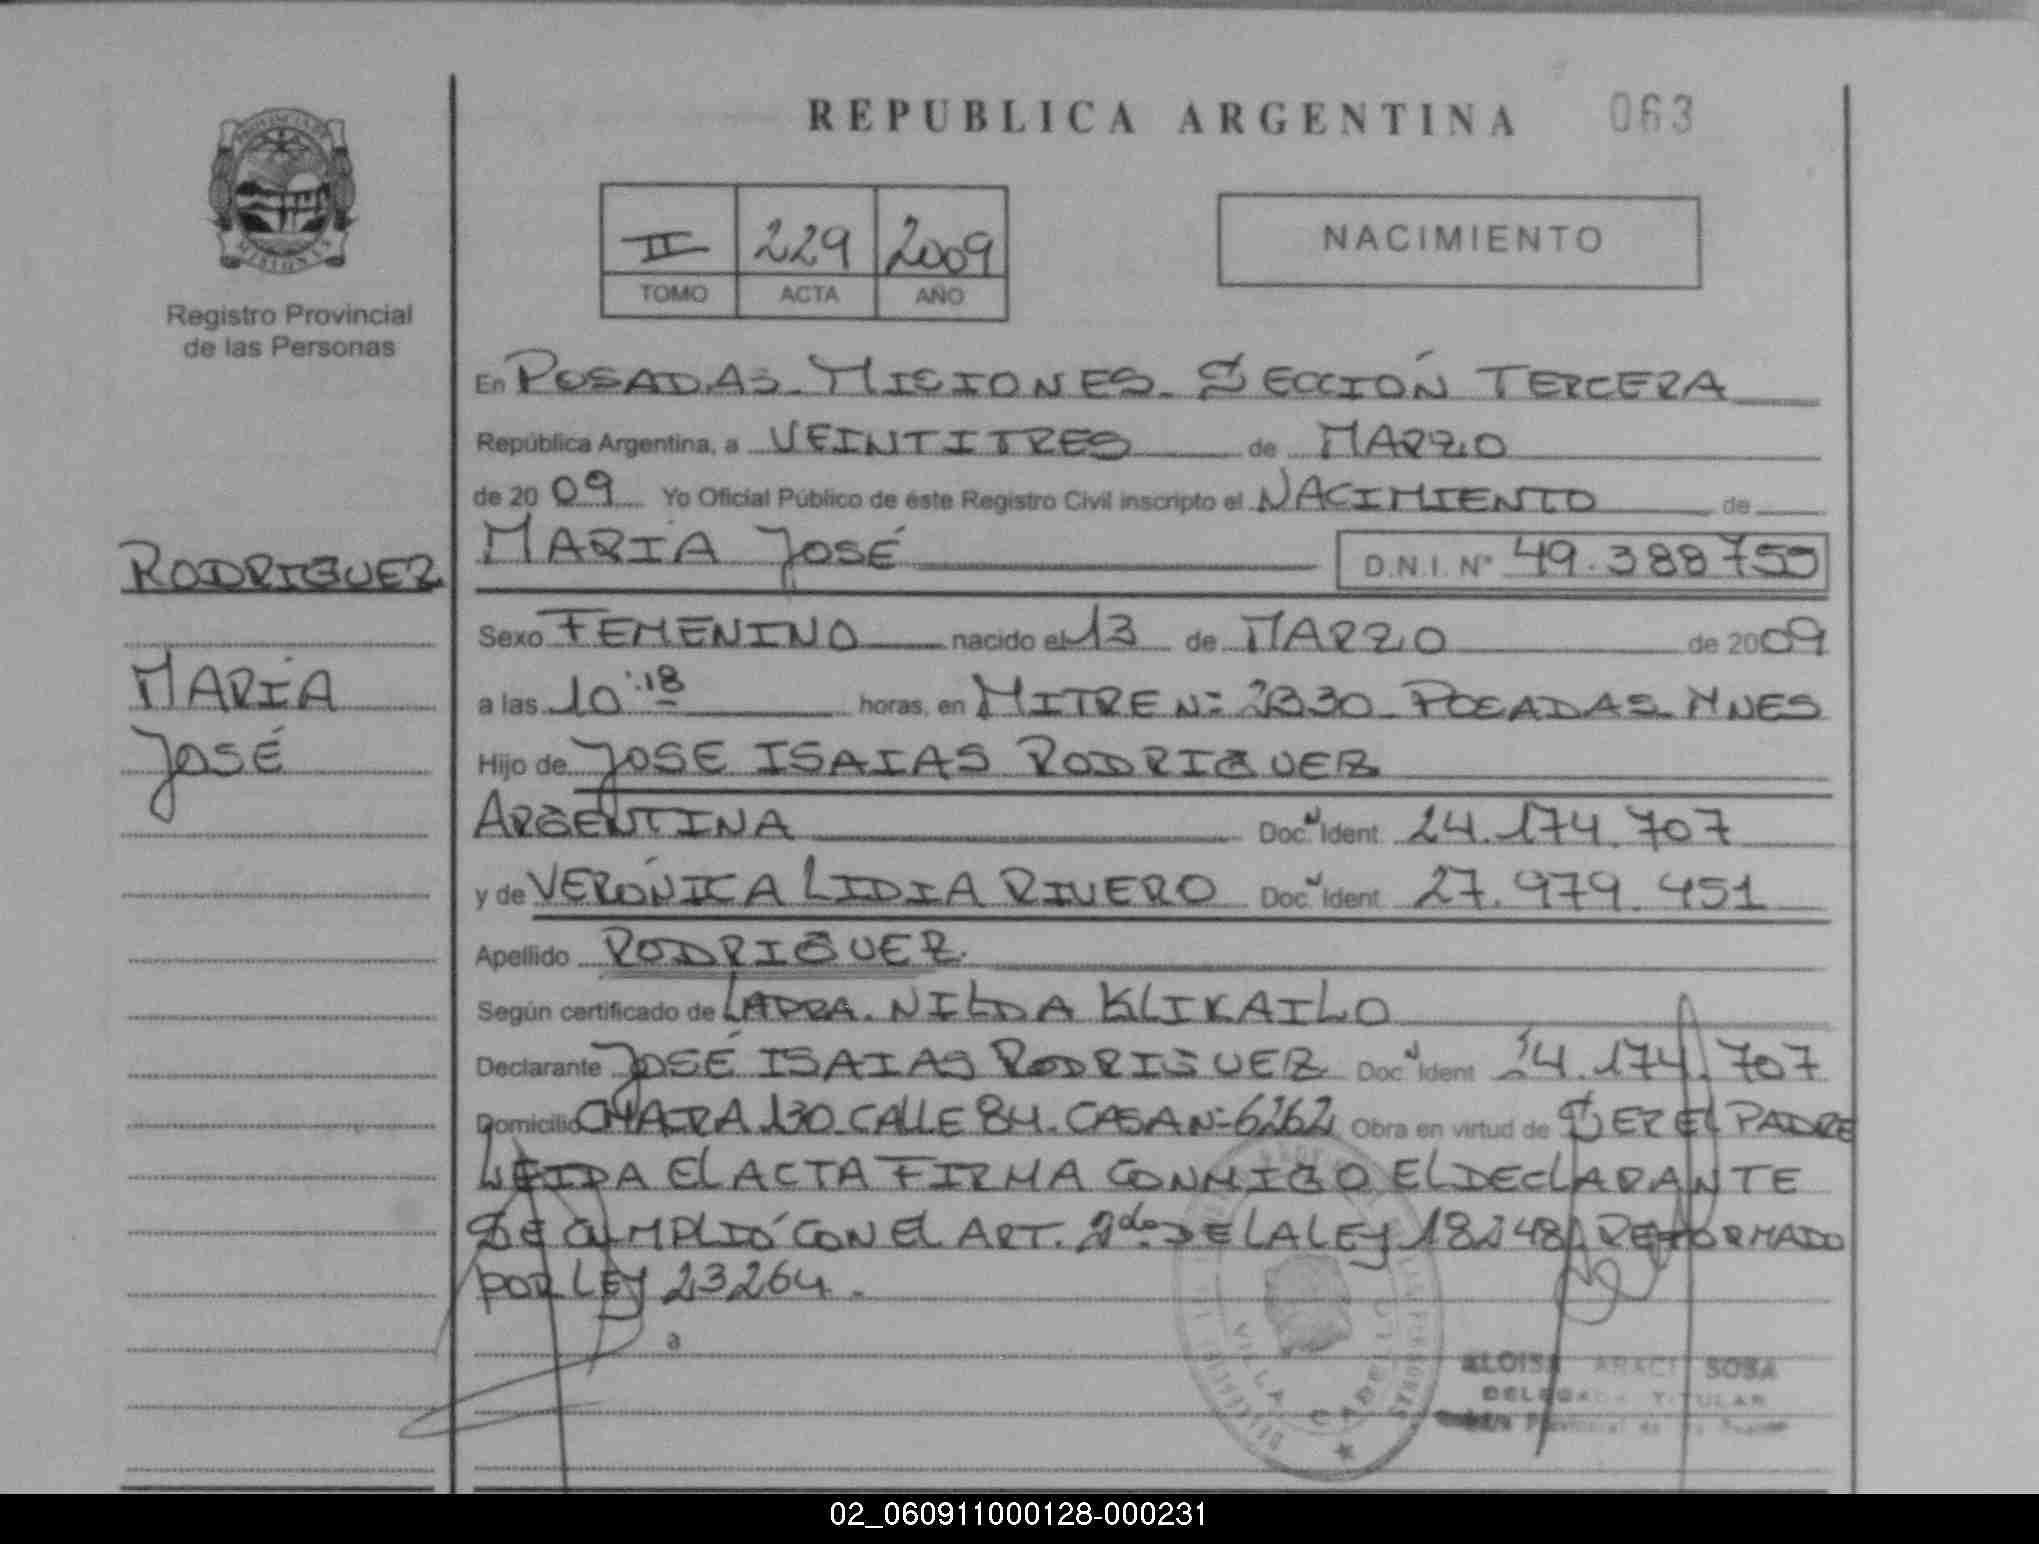 REPUBLICA ARGENTINA 063
PROVINCIA DE
MISIONES
Registro Provincial
de las Personas
II 229 2009
TOMO ACTA AÑO
NACIMIENTO
En POSADAS - MISIONES - SECCIÓN TERCERA
República Argentina, a VEINTITRES de MARZO
de 2009 Yo Oficial Público de éste Registro Civil inscripto el NACIMIENTO de
RODRIGUEZ
MARÍA JOSÉ
MARÍA JOSÉ D.N.I. Nº 49.388755
Sexo FEMENINO nacido el 13 de MARZO de 2009
a las 10:18 horas, en MITRE Nº 2330 - POSADAS - MNES
Hijo de JOSE ISAIAS RODRIGUEZ
ARGENTINA Doc. Ident 24.174.707
y de VERÓNICA LIDIA RIVERO Doc. Ident 27.979.451
Apellido RODRIGUEZ.
Según certificado de LADRA. NILDA KLIKAILO
Declarante JOSÉ ISAIAS RODRIGUEZ Doc. Ident 24.174.707
Domicilio CHACRA 130 - CALLE 84 - CASA Nº 6262 Obra en virtud de SER EL PADRE
LEIDA EL ACTA FIRMA CONMIGO EL DECLARANTE
SE CUMPLIÓ CON EL ART. 2do. DE LA LEY 18248 REFORMADO
POR LEY 23264.
a
VILLA CABELLO
ARACI SOSA
DELEGADA TITULAR
02_060911000128-000231